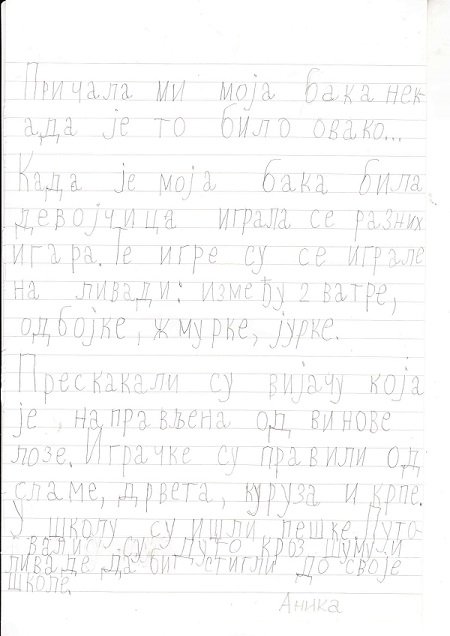 Причала ми моја бака нек-
ада је то било овако...
Када је моја бака била
девојчица играла се разних
игара. Те игре су се играле
на ливади: између 2 ватре,
одбојке, жмурке, јурке.
Прескакали су вијачу која
је направљена од винове
лозе. Играчке су правили од
сламе, дрвета, куруза и крпе.
У школу су ишли пешке. Путо-
вали су дуго кроз шуму и
ливаде да би стигли до своје
школе.
Аника